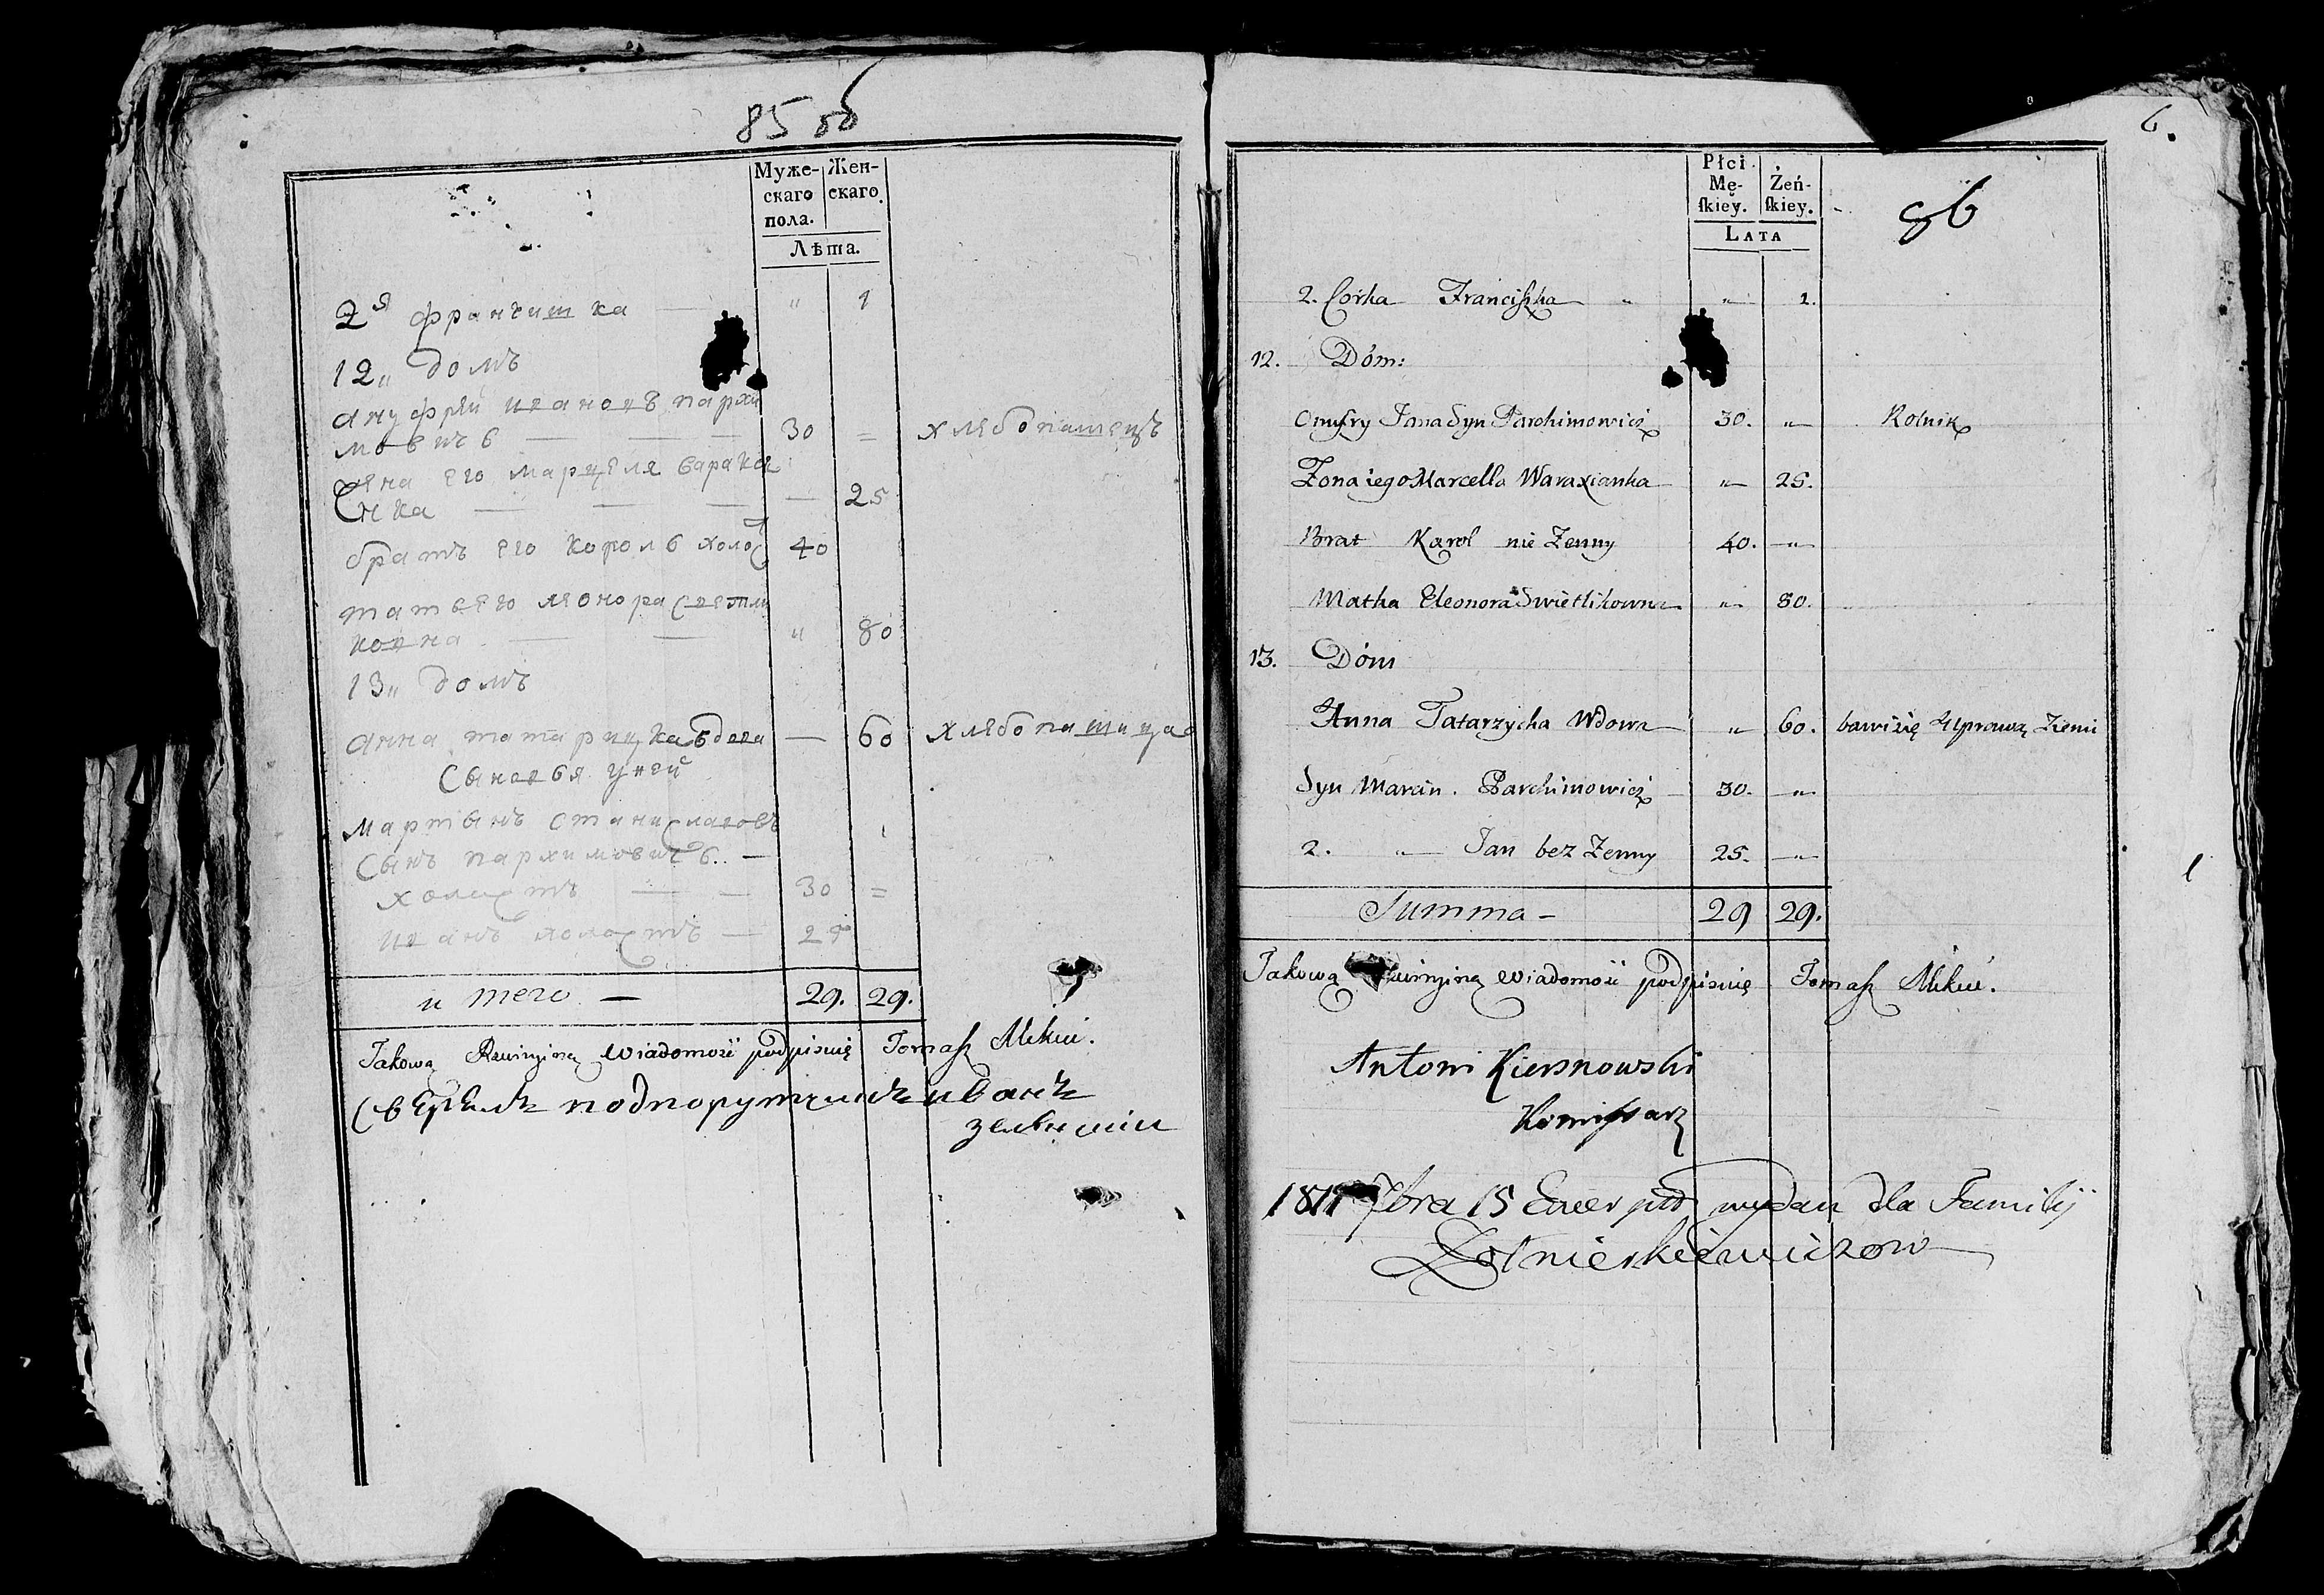 85 об
Муже-
скаго
пола.
Жен-
скаго.
Лѣта.
2я франчишка — " 1
12" домъ
ануфрій ивановъ пархи
мовичь — 30 = хлебопашецъ
жена его марцеля варакся
нка — — 25
братъ его король холос 40
мать его леонора светли
ковна — " 80
13" домъ
анна татарицка вдова — 60 хлебопашица
Сыновья у ней
мартынъ станиславовъ
Сынъ пархимовичь —
холостъ — 30 =
иванъ холостъ — 25
и того — 29. 29.
Takową Rewizyiną wiadomość podpisuię Tomasz Mikuć.
Сверялъ подпорутчикъ иванъ
6.
Płci
Mę-
ſkiey.
Żeń-
ſkiey.
86
LATA
2. Corka Franciszka " " 1.
12. Dóm:
Onufry Jana Syn Parchimowicz 30. " Rolnik
Zona iego Marcella Waraxianka " 25.
Brat Karol nie Zenny 40. "
Matka Eleonora Swietlikowna " 80.
13. Dóm
Anna Tatarzycha Wdowa " 60. bawi się Uprawą Ziemi
Syn Marcin. Parchimowicz 30. "
2. " Jan bez Zenny 25. "
Summa — 29 29.
Takową Rewizyiną wiadomość podpisuię Tomasz Mikuć.
Antoni Kiersnowski
Komissarz
7bra 15 wydan dla Familij
Zołnierkiewiczow